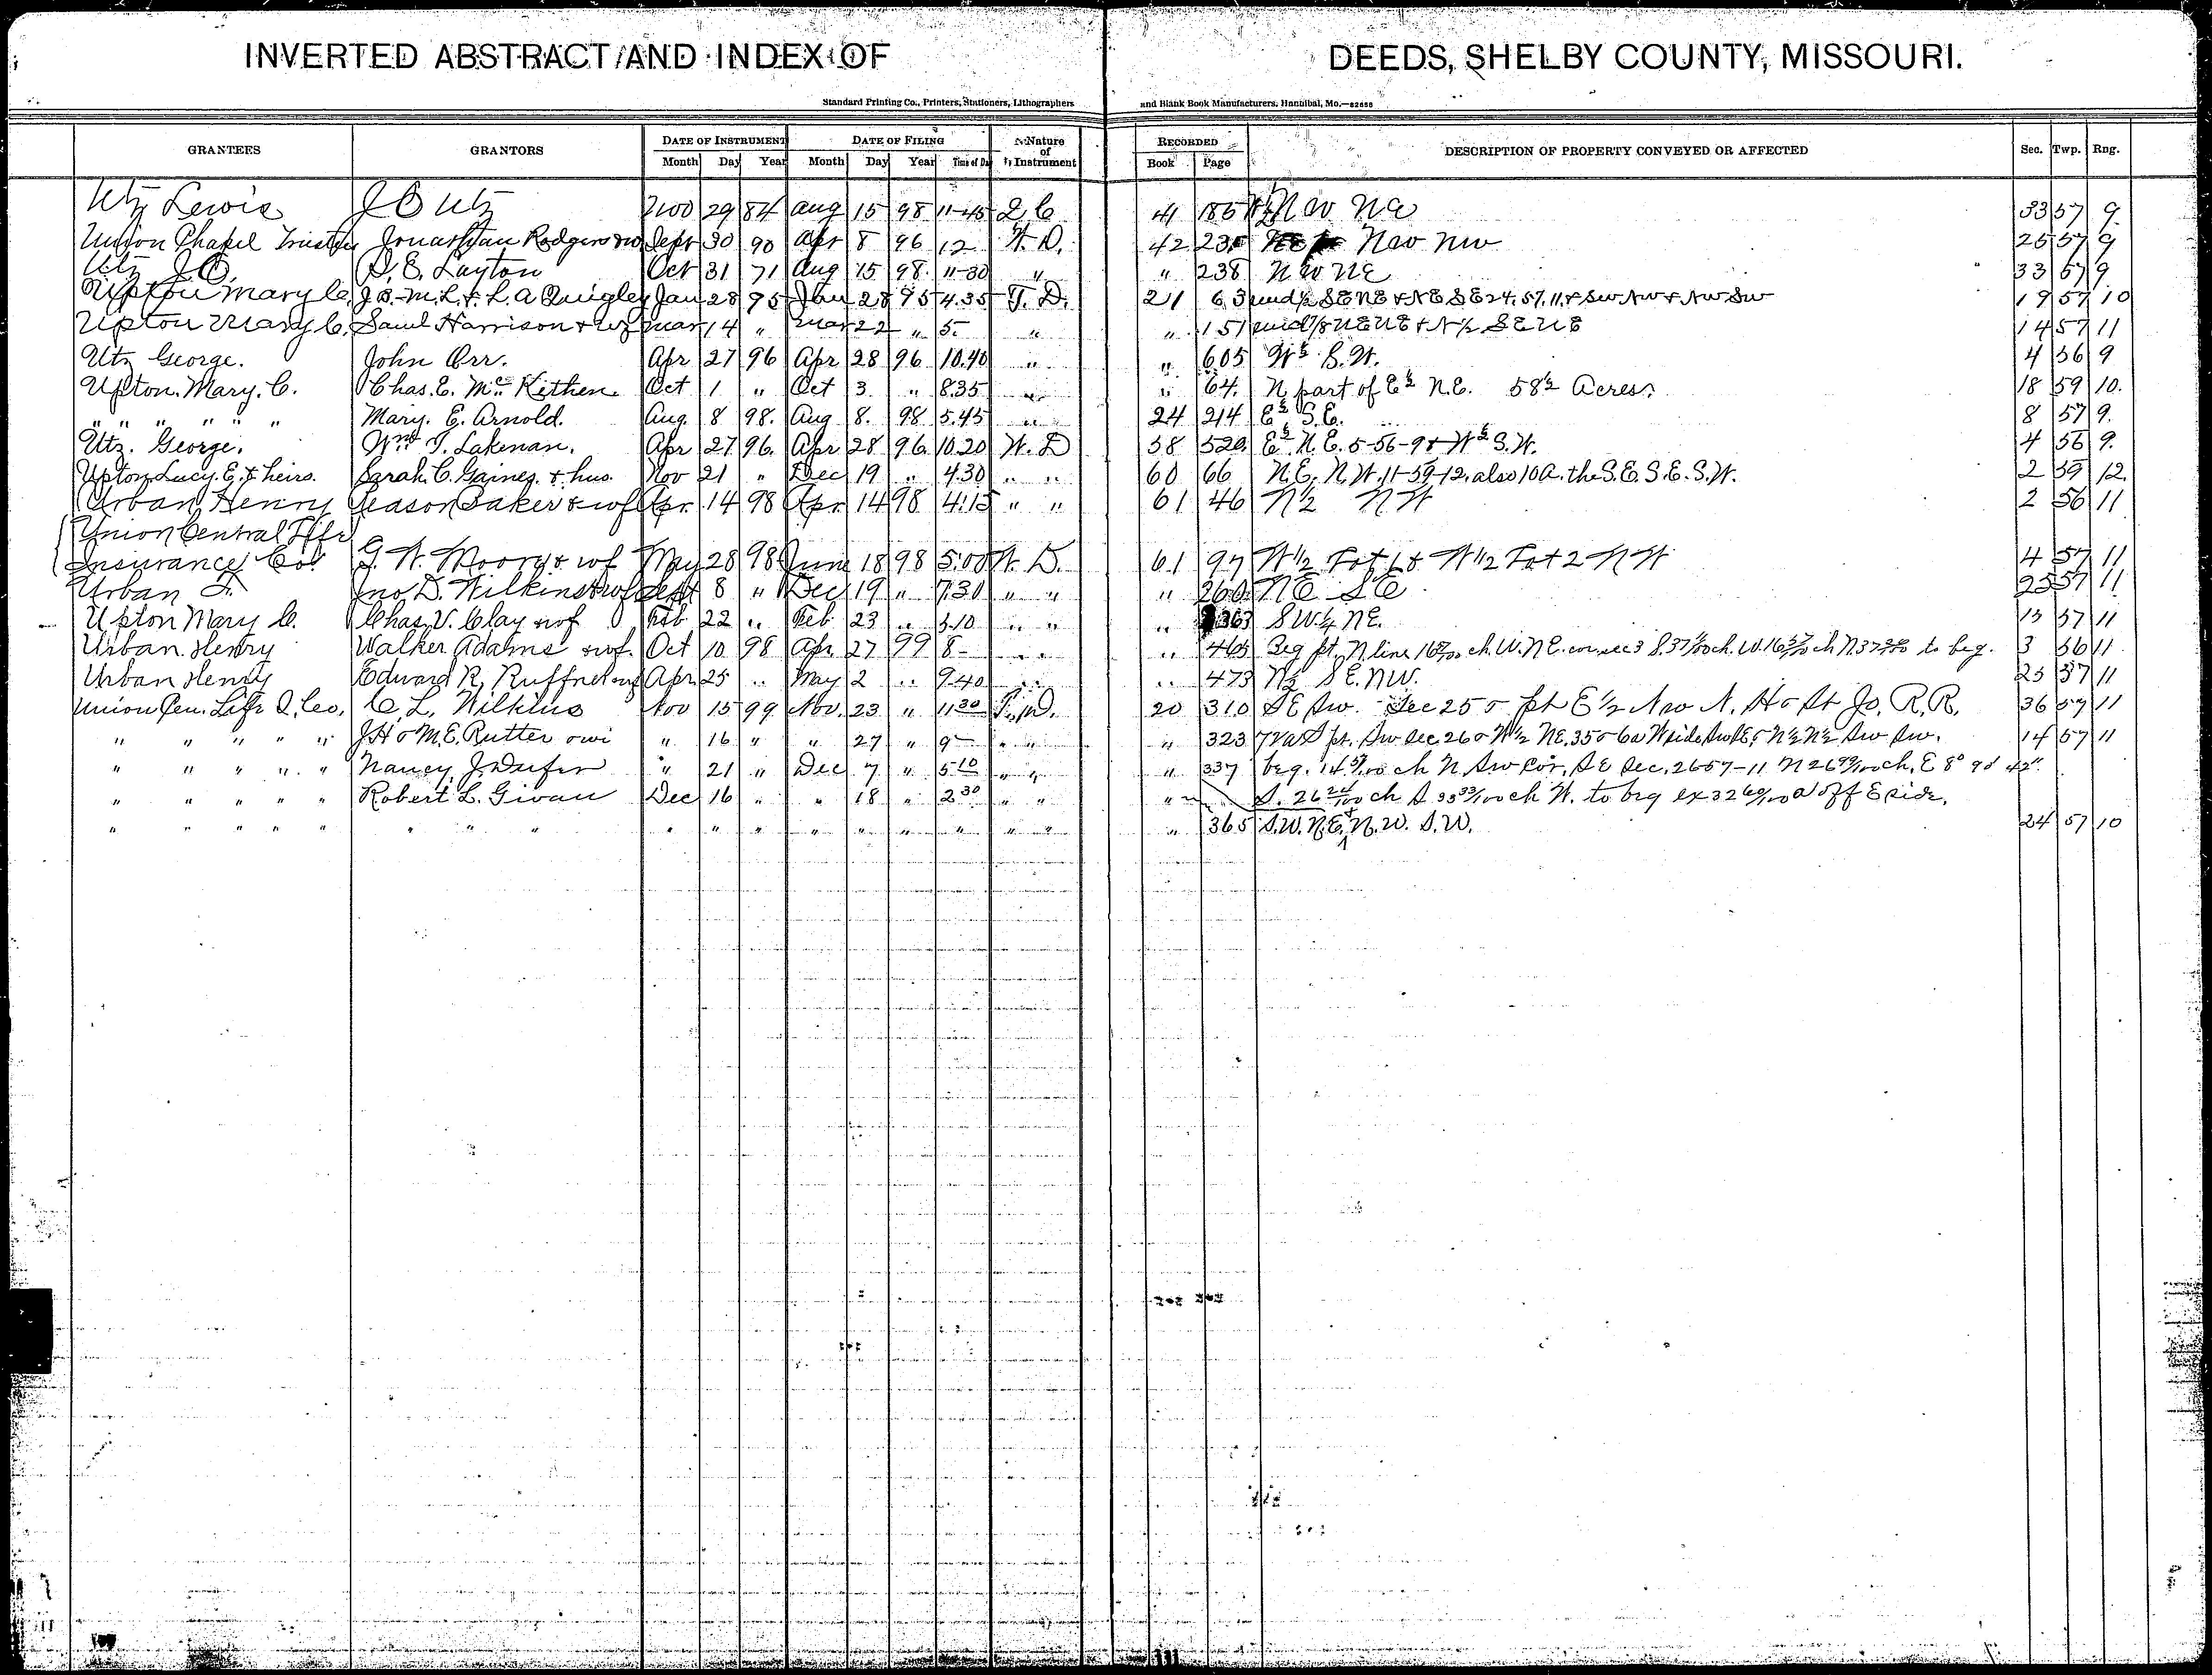 INVERTED ABSTRACT AND INDEX OF DEEDS, SHELBY COUNTY, MISSOURI.
Standard Printing Co., Printers, Stationers, Lithographers and Blank Book Manufacturers, Hannibal, Mo.—82658
GRANTEES GRANTORS DATE OF INSTRUMENT DATE OF FILING Nature of Instrument RECORDED DESCRIPTION OF PROPERTY CONVEYED OR AFFECTED Sec. Twp. Rng.
Month Day Year Month Day Year Time of Day Book Page
Utz Lewis J O Utz Nov 29 84 Aug 15 98 11-45 2 C 41 185 Nw Ne 33 57 9
Union Chapel Trustee Jonathan Rodgers Sept 30 90 Apr 8 96 12 W. D. 42 23 Nw nw 26 57 9
Utz J O. D. E. Layton Oct 31 71 Aug 15 98 11-30 " " 238 Nw NE 33 57 9
Upton Mary C. J. B. - M. L. & L. A Quigley Jan 28 95 Jan 28 95 4.35 T. D. 21 6 3 und ½ SE NE & NE SE 24. 57. 11 & Sw Nw & Nw Sw 19 57 10
Upton Mary C. Saml Harrison & wf Mar 14 " Mar 22 " 5- " " 151 und ⅛ NE NE & N ½ SE NE 14 57 11
Utz George. John Orr. Apr 27 96 Apr 28 96 10.40 " " 605 W½ S.W. 4 56 9
Upton. Mary. C. Chas. E. McKethen Oct 1 " Oct 3. " 8.35 " " 64. N. part of E½ N.E. 58½ Acres. 18 59 10.
" " " " " Mary. E. Arnold. Aug. 8 98. Aug 8. 98 5.45 " " 24 214 E½ S.E. 8 57 9.
Utz. George. Wm T. Lakenan. Apr 27 96. Apr 28 96 10.20 W. D 58 520. E½ N.E. 5-56-9 & W½ S.W. 4 56 9.
Upton Lucy. E. & heirs. Sarah. C. Gaines. & hus. Nov 21 " Dec 19 " 4.30 " " 60 66 N.E. N.W. 11-59-12, also 10 A. the S.E. S.E. S.W. 2 59 12.
Urban, Henry Geason Baker & wf Apr. 14 98 Apr. 14 98 4:15 " " 61 46 N½ NW 2 56 11
Union Central Life
Insurance Co. G. W. Moory & wf May 28 98 June 18 98 5:00 W. D. 61 97 W½ Lot 1 & W½ Lot 2 NW 4 57 11
Urban F. Jno D. Wilkins & wf Sept 8 " Dec 19 " 7.30 " " " 260 NE SE 25 57 11
Upton Mary C. Chas. V. Clay & wf Feb 22 " Feb 23 " 3.10 " " " 363 SW¼ NE. 13 57 11
Urban. Henry Walker Adams & wf. Oct 10 98 Apr. 27 99 8- " " " Beg pt. N. line ch. W. N.E. cor. sec 3 to beg. 3 56 11
Urban Henry Edward R. Ruffner & wf Apr. 25 " May 2 " 9.40 " " " 473 N½ S E. NW. 25 57 11
Union Cen. Life I. Co. C. L. Wilkins Nov 15 99 Nov. 23 " 11 30 T. D. 20 310 SE Sw. Sec 25 & pt E ½ Nw N. H & St Jo. R. R. 36 57 11
" " " " " J H & M. E. Rutter & wi " 16 " " 27 " 9- " " " 323 pt. Sw Sec. 26 & W½ NE. 35 & 6a W side Sw & N½ N½ Sw Sw. 14 57 11
" " " " " Nancy J. " 21 " Dec 7 " 5 10 " " " 337 beg. ch N. Sw Cor. SE Sec. 26 57-11 N ch, E
" " " " " Robert L. Givan Dec 16 " " 18 " 2 30 " " " ch S ch W. to beg ex a off E side.
" " " " " " " " " " " " " " " " " " 365 S.W. N.E. & N.W. S.W. 24 57 10